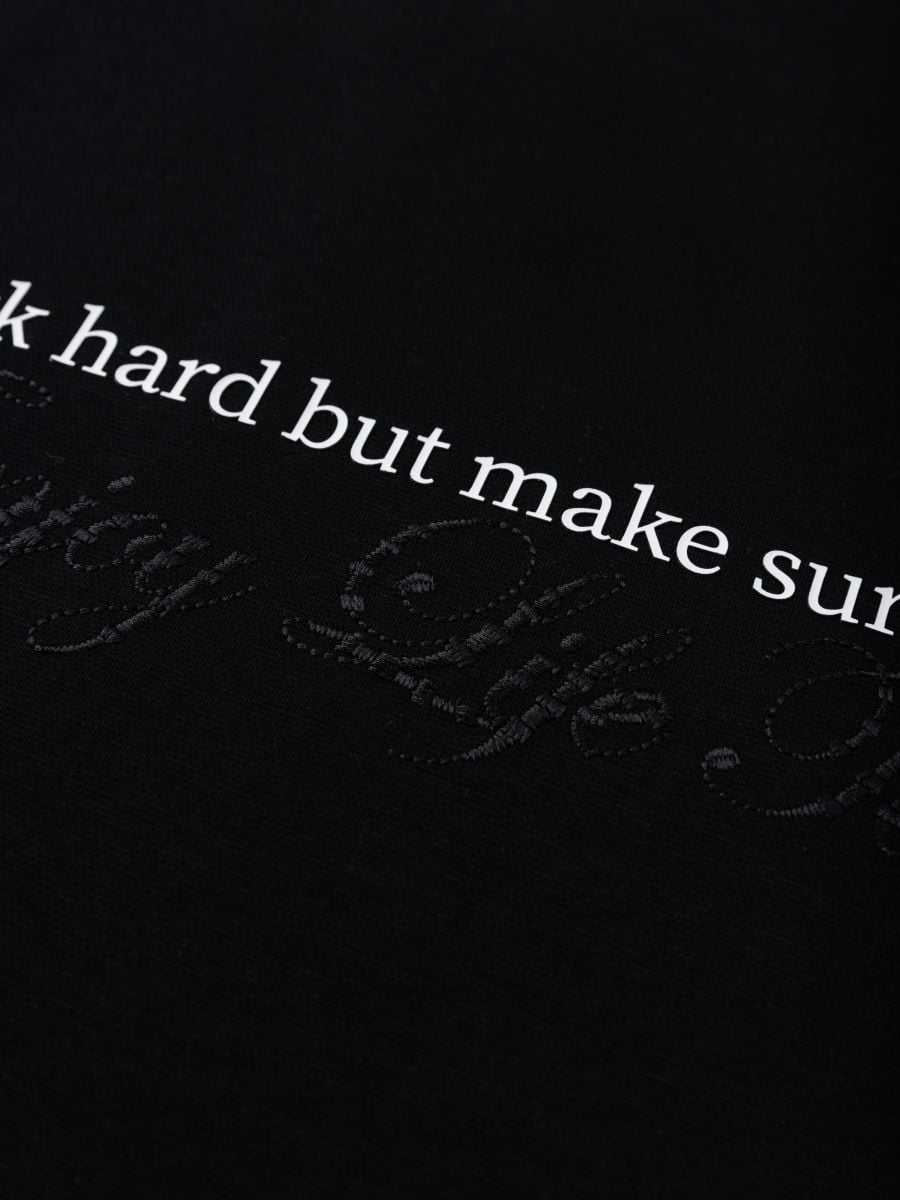 k hard but make sur
njoy Life